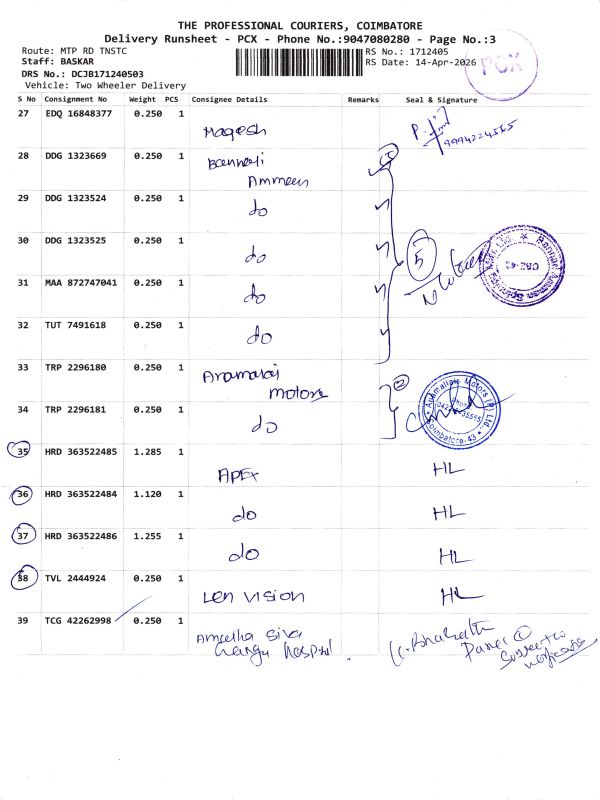 THE PROFESSIONAL COURIERS, COIMBATORE
Delivery Runsheet - PCX - Phone No.:9047080280 - Page No.:3
Route: MTP RD TNSTC
RS No.: 1712405
Staff: BASKAR
RS Date: 14-Apr-2026
PCX
DRS No.: DCJB171240503
Vehicle: Two Wheeler Delivery
S No Consignment No Weight PCS Consignee Details Remarks Seal & Signature
27 EDQ 16848377 0.250 1
Magesh
28 DDG 1323669 0.250 1
Bannari
Ammaen
29 DDG 1323524 0.250 1
do
30 DDG 1323525 0.250 1
do
5
31 MAA 872747041 0.250 1
do
32 TUT 7491618 0.250 1
do
33 TRP 2296180 0.250 1
Anamalai
Motors
2
34 TRP 2296181 0.250 1
do
Anamallais Motors (P) Ltd.
Coimbatore-43
35 HRD 363522485 1.285 1
APEX HL
36 HRD 363522484 1.120 1
do HL
37 HRD 363522486 1.255 1
do HL
38 TVL 2444924 0.250 1
Len vision HL
39 TCG 42262998 0.250 1
Siva
hospital